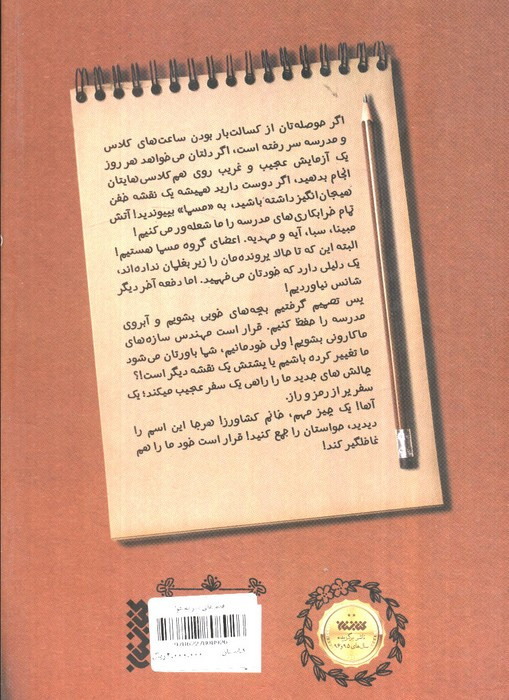 اگر حوصله‌تان از کسالت‌بار بودن ساعت‌های کلاس
و مدرسه سر رفته است، اگر دلتان می‌خواهد هر روز
یک آزمایش عجیب و غریب روی هم‌کلاسی‌هایتان
انجام بدهید، اگر دوست دارید همیشه یک نقشه خفن
و هیجان‌انگیز داشته باشید، به «مسپا» بپیوندید! آتش
تمام خرابکاری‌های مدرسه را ما شعله‌ور می‌کنیم!
مبینا، سبا، آیه و مهدیه. اعضای گروه مسپا هستیم!
البته این که تا حالا پرونده‌مان را زیر بغلمان نداده‌اند،
یک دلیلی دارد که خودتان می‌فهمید. اما دفعه آخر دیگر
شانس نیاوردیم!
پس تصمیم گرفتیم بچه‌های خوبی بشویم و آبروی
مدرسه را حفظ کنیم. قرار است مهندس سازه‌های
ماکارونی بشویم! ولی خودمانیم، شما باورتان می‌شود
ما تغییر کرده باشیم یا پشتش یک نقشه دیگر است!؟
چالش های جدید ما را راهی یک سفر عجیب میکند؛ یک
سفر پر از رمز و راز.
آها! یک چیز مهم، خانم کشاورز! هرجا این اسم را
دیدید، حواستان را جمع کنید! قرار است خود ما را هم
غافلگیر کند!
ناشر برگزیده
سال‌های ۹۵ و ۹۴